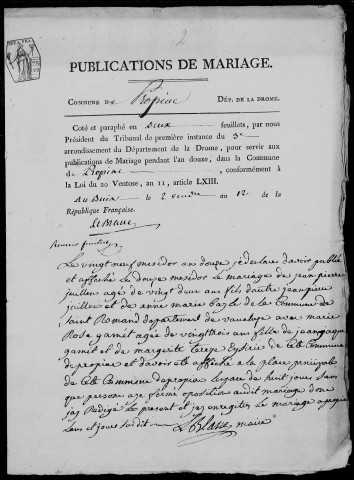 2
PUBLICATIONS DE MARIAGE.
COMMUNE DE Propiac DÉP. DE LA DROME.
Coté et paraphé en deux feuillets, par nous
Président du Tribunal de première instance du 3e
arrondissement du Département de la Drome, pour servir aux
publications de Mariage pendant l'an douze, dans la Commune
de Propiac, conformément à
la Loi du 20 Ventose, an 11, article LXIII.
Au Buix le 2 vendre an 12 de la
République Française.
premier feuillet
Le vingt neuf mesidor an douze je declare davoir publié
et affeché Le douze mesidor Le mariage de jean pierre
juillen agée de vingt deux ans fils dautre jean pierre
juillen et de anne marie bayle de la Commune de
saint Romand departement de vaucluse avec marie
Rose gamet agée de vingt trois ans fille de jean jaque
gamet et de margerite tereze de Cete Commune
de propiac et davoir ete affeché a la place prinsipale
de Cete Commune de propiac Lespase de huit jours sans
que persone aye formé oposition audit mariage donc
jay Redigé Le present et jay enregitré Le mariage a propiac
Les an et jours susdit Leblanc maire